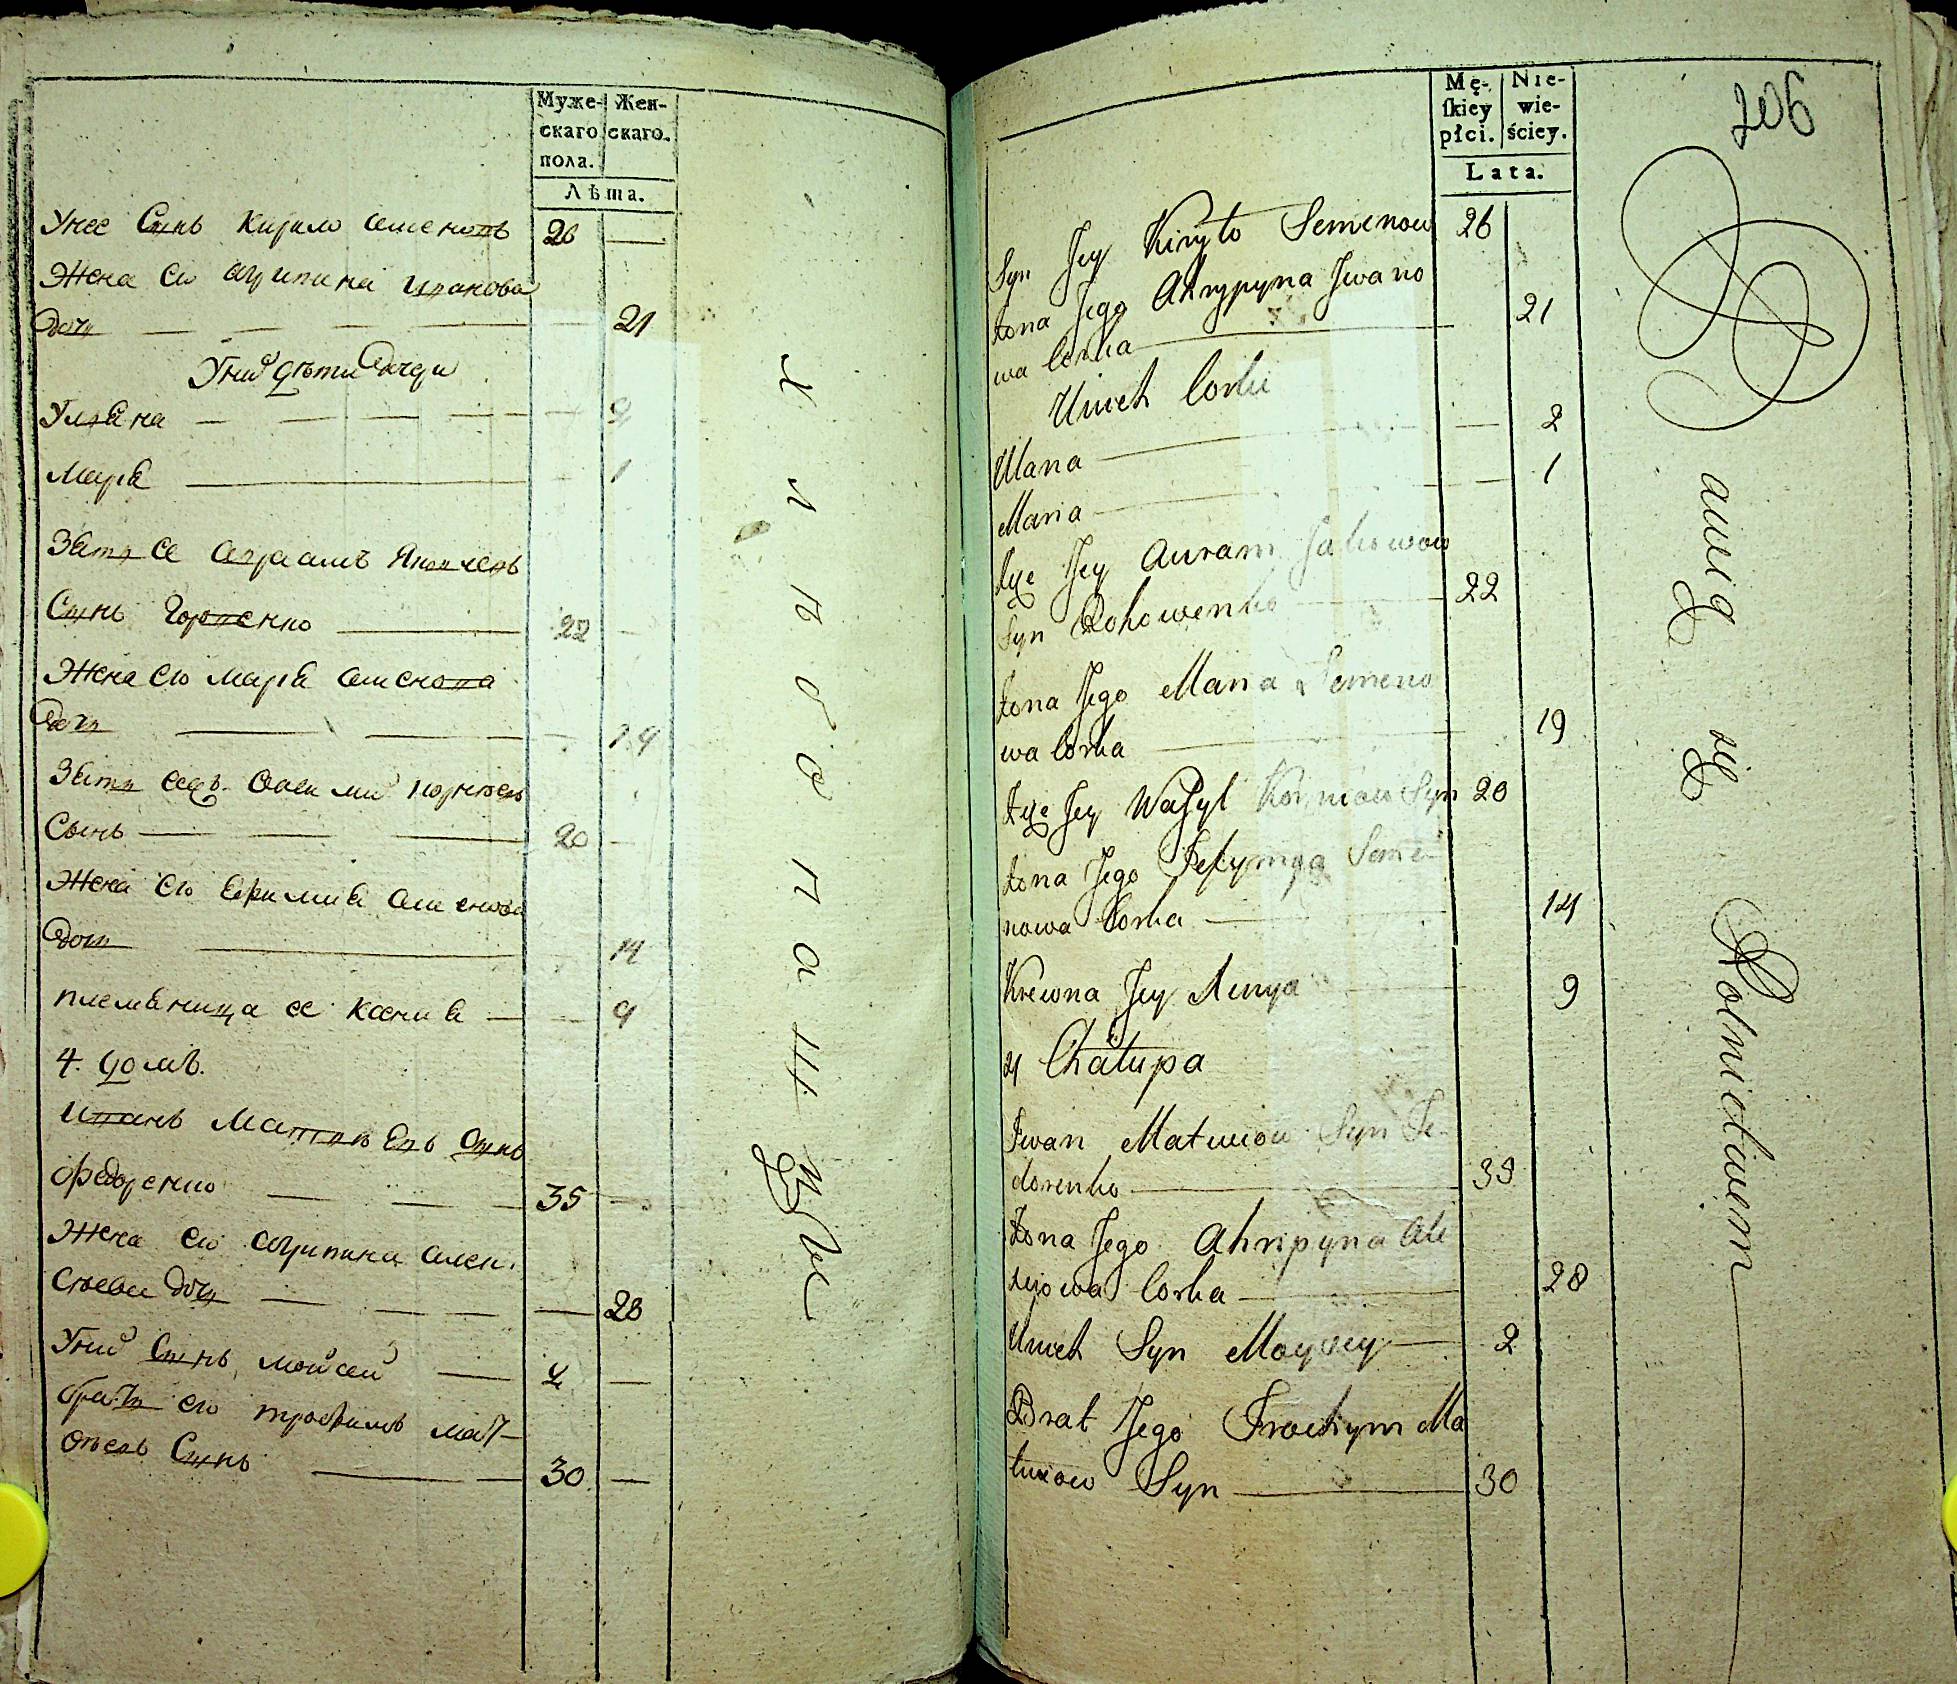 Муже-
скаго
пола.
Жен-
скаго.
Лѣта.
Унее Сынъ Кирило Семеновъ 26 —
Жена его Агрипина Иванова
дочь — 21
У нихъ дѣти дочери
Уляна — 2
Марія — 1
Зять ее Авраамъ Яковлевъ
Сынъ — 22 —
Жена его Марія Семенова
дочь — 19
Зять ее Василий Корнѣевъ
Сынъ — 20 —
Жена его Ефимия Семенова
дочь — 14
племяница ее Ксения — 9
4. домъ.
Иванъ Матвѣевъ Сынъ
Федоренко — 35 —
Жена его Агрипина Алек-
сѣева дочь — 28
У нихъ Сынъ Мойсей — 2 —
братъ его трофимъ мат-
вѣевъ Сынъ — 30 —
хлѣбопаш
Mę-
skiey
płci.
Nie-
wie-
ściey.
Lata.
206
Syn Jey Kiryło Semenow 26
Żona Jego Ahrypyna Iwano
wa Corka — 21
U nich Corki
Ulana — 2
Maria — 1
Zięć Jey Auram Jakowow
Syn Rohowenko — 22
Żona Jego Maria Semeno
wa Corka — 19
Zięć Jey Wasyl Korniow Syn 20
Żona Jego Jefymya Seme-
nowa Corka — 14
Krewna Jey — 9
4 Chałupa
Iwan Matwiow Syn Fe-
dorenko — 35
Żona Jego Ahripyna Ale
xiowa Corka — 28
U nich Syn Moysey — 2
Brat Jego Trochym Ma
twiow Syn — 30
Bawią się Rolnictwem